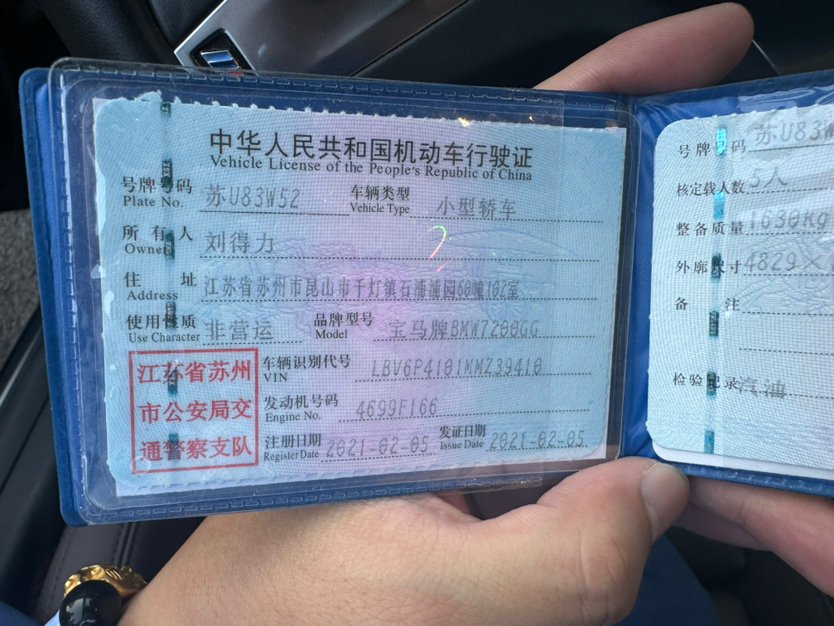 中华人民共和国机动车行驶证
Vehicle License of the People's Republic of China
号牌号码 苏U83W52 车辆类型 小型轿车
Plate No. Vehicle Type
所有人 刘得力
Owner
住址 江苏省苏州市昆山市千灯镇石浦浦园60幢102室
Address
使用性质 非营运 品牌型号 宝马牌BMW7200GG
Use Character Model
江苏省苏州
市公安局交
通警察支队
车辆识别代号 LBV6P4101MMZ39410
VIN
发动机号码 4699F166
Engine No.
注册日期 2021-02-05 发证日期 2021-02-05
Register Date Issue Date
号牌号码 苏U83W
核定载人数 5人
整备质量 1630kg
外廓尺寸 4829×
备注
检验记录 汽油